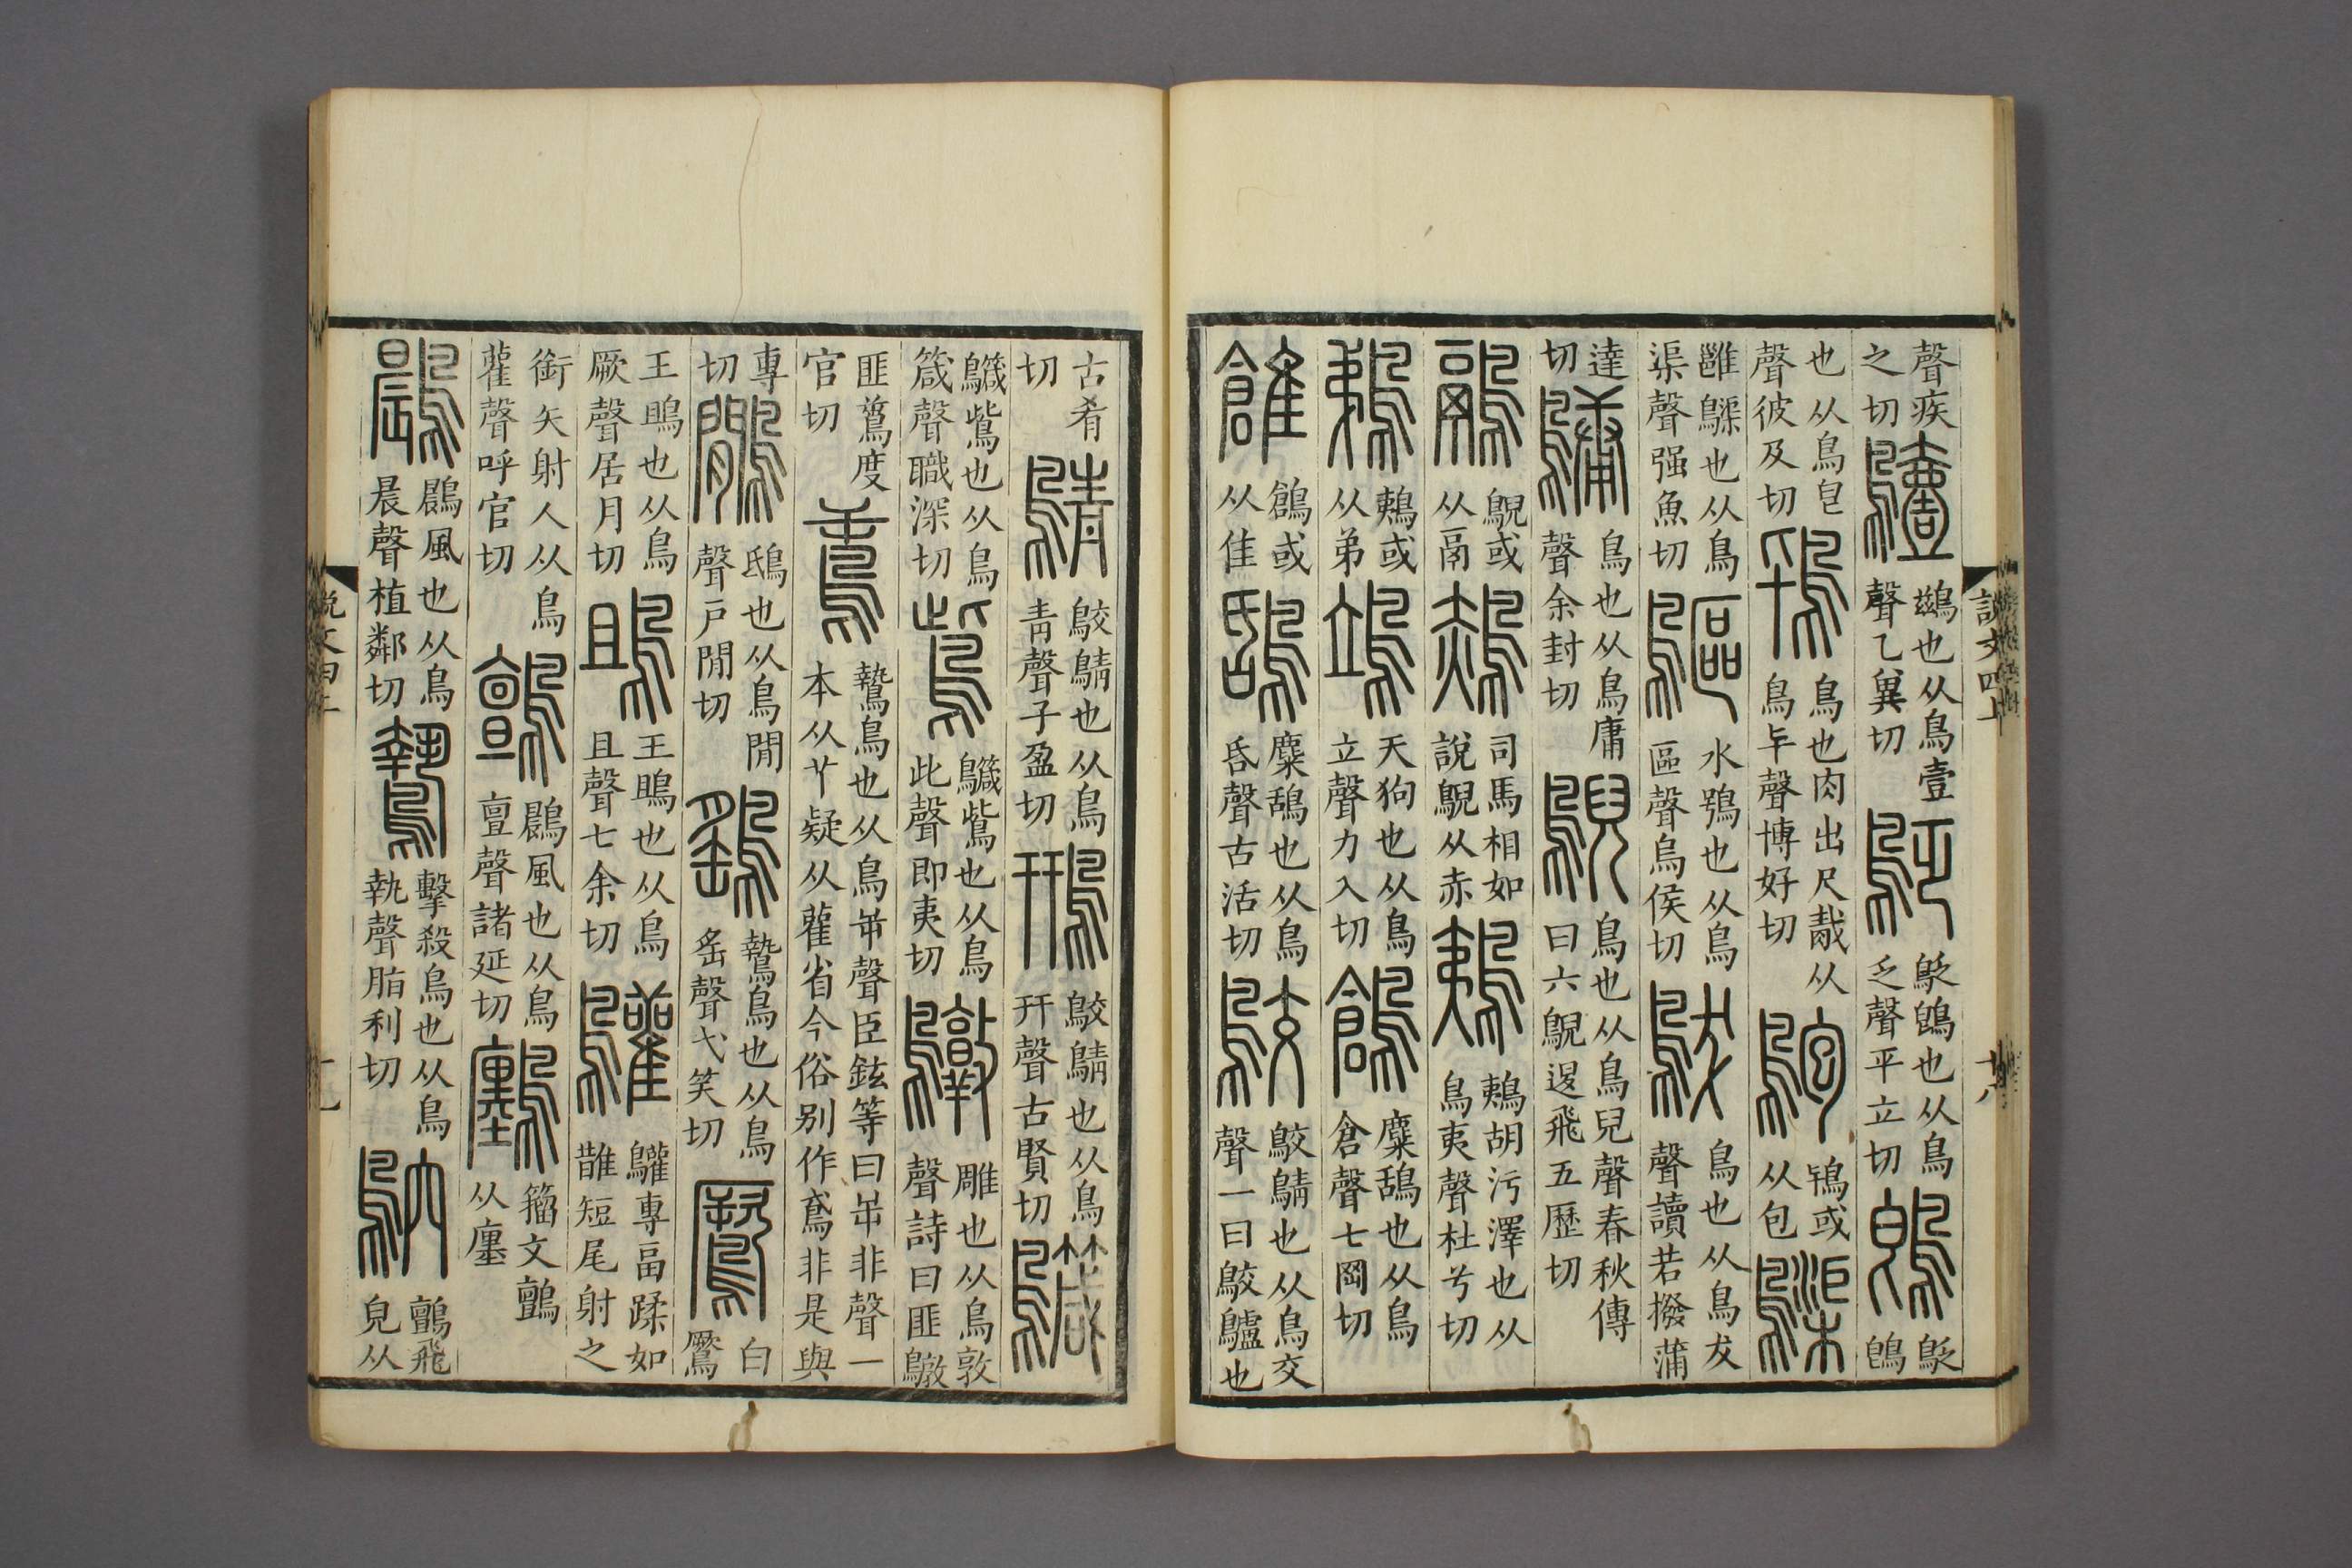 聲疾之切鷧鷀也从鳥壹聲乙冀切鴔鴔鵖也从鳥乏聲平立切鵖鴔鵖
也从鳥皀聲彼及切鴇鳥也肉出尺胾从鳥𠤏聲博好切鴇或从包䴌
雝䴌也从鳥渠聲强魚切鷗水鴞也从鳥區聲烏侯切鳥也从鳥犮聲讀若撥蒲
達切鷛鳥也从鳥庸聲余封切鶂鳥也从鳥兒聲春秋傳曰六鶂退飛五歷切
鷊鶂或从鬲司馬相如說鶂从赤鴺鴺胡污澤也从鳥夷聲杜兮切
鵜鴺或从弟鴗天狗也从鳥立聲力入切鶬麋鴰也从鳥倉聲七岡切
鶬或从隹鴰麋鴰也从鳥𠯑聲古活切鵁鵁鶄也从鳥交聲一曰鵁鸕也
古肴切鶄鵁鶄也从鳥青聲子盈切鳽鵁鶄也从鳥幵聲古賢切
鴜也从鳥箴聲職深切鴜鴜也从鳥此聲即夷切鷻雕也从鳥敦聲詩曰匪鷻
匪鳶度官切鷙鳥也从鳥屰聲臣鉉等曰屰非聲一本从𦫳疑从雚省今俗別作鳶非是與
專切鷳鴟也从鳥閒聲戶閒切鷂鷙鳥也从鳥䍃聲弋笑切鷢白鷢
王鴡也从鳥厥聲居月切鴡王鴡也从鳥且聲七余切鸛鸛專畐蹂如䧿短尾射之
銜矢射人从鳥雚聲呼官切鸇鷐風也从鳥亶聲諸延切籒文鸇从廛
鷐鷐風也从鳥晨聲植鄰切鷙擊殺鳥也从鳥執聲脂利切鴥鸇飛皃从
說文四上
十八